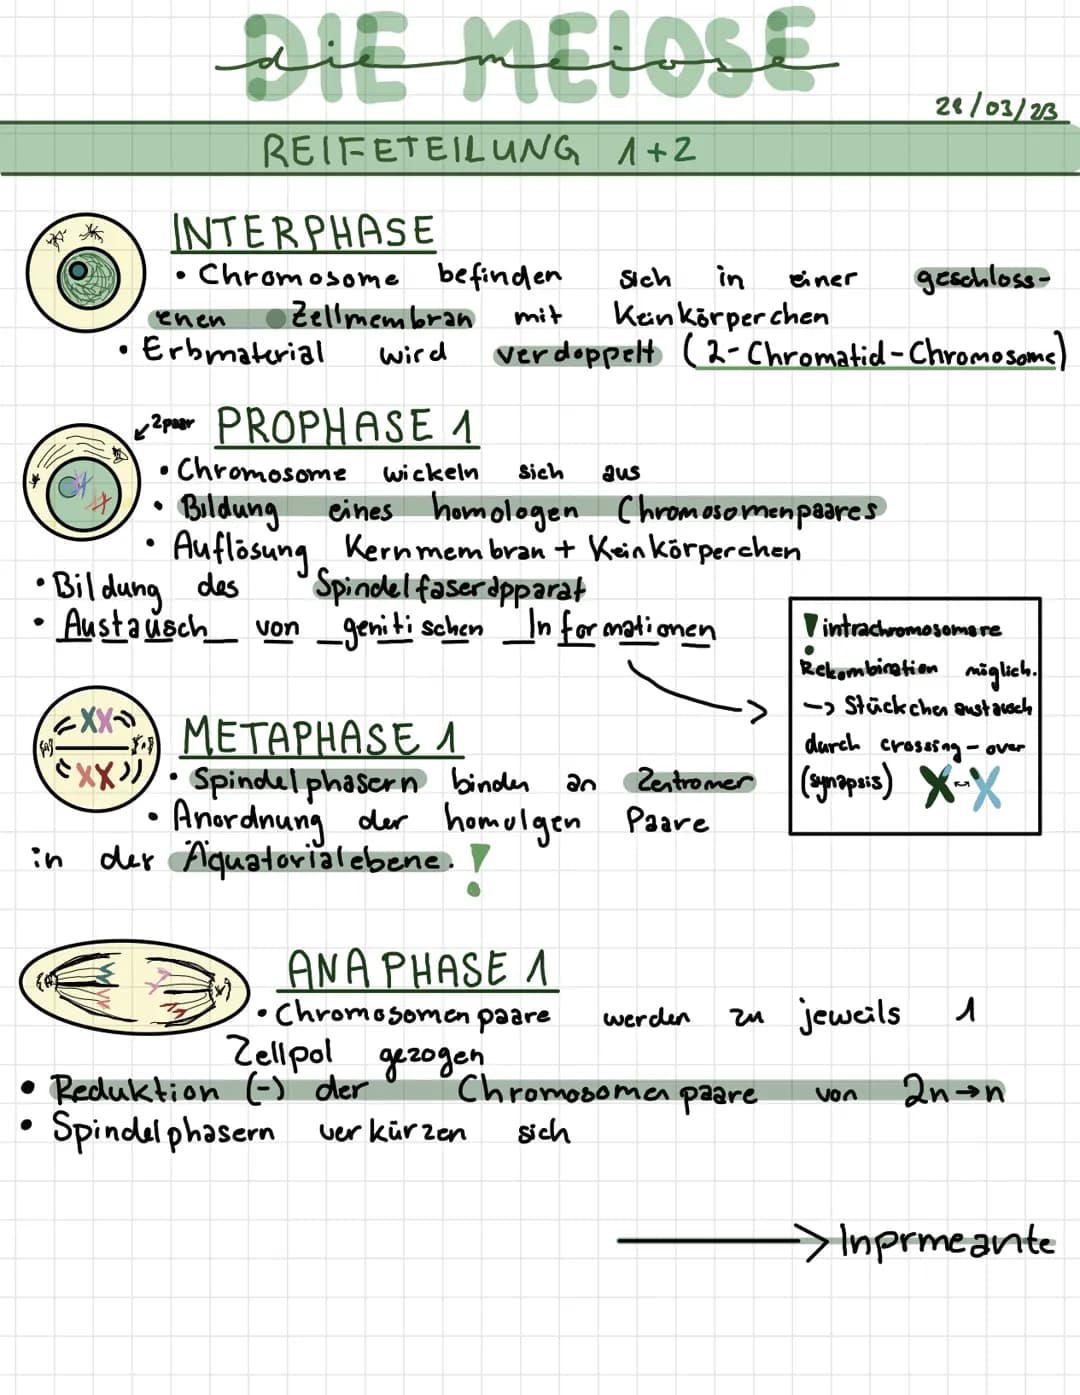 DIE MEIOSE
die meiose
28/03/23
REIFETEILUNG 1+2
INTERPHASE
• Chromosome befinden sich in einer geschloss-
enen Zellmembran mit Keinkörperchen
• Erbmaterial wird verdoppelt (2-Chromatid-Chromosome)
2paar PROPHASE 1
• Chromosome wickeln sich aus
• Bildung eines homologen Chromosomenpaares
• Auflösung Kernmembran + Keinkörperchen
• Bildung des Spindelfaserapparat
• Austausch von genitischen Informationen
! intrachromosomare
Rekombination möglich.
-> Stückchen austausch
durch crossing-over
(synapsis) X↔X
METAPHASE 1
• Spindelphasern binden an Zentromer
• Anordnung der homolgen Paare
in der Äquatorialebene. !
ANAPHASE 1
• Chromosomenpaare werden zu jeweils 1
Zellpol gezogen
• Reduktion (-) der Chromosomenpaare von 2n→n
• Spindelphasern verkürzen sich
→ Inprmeante